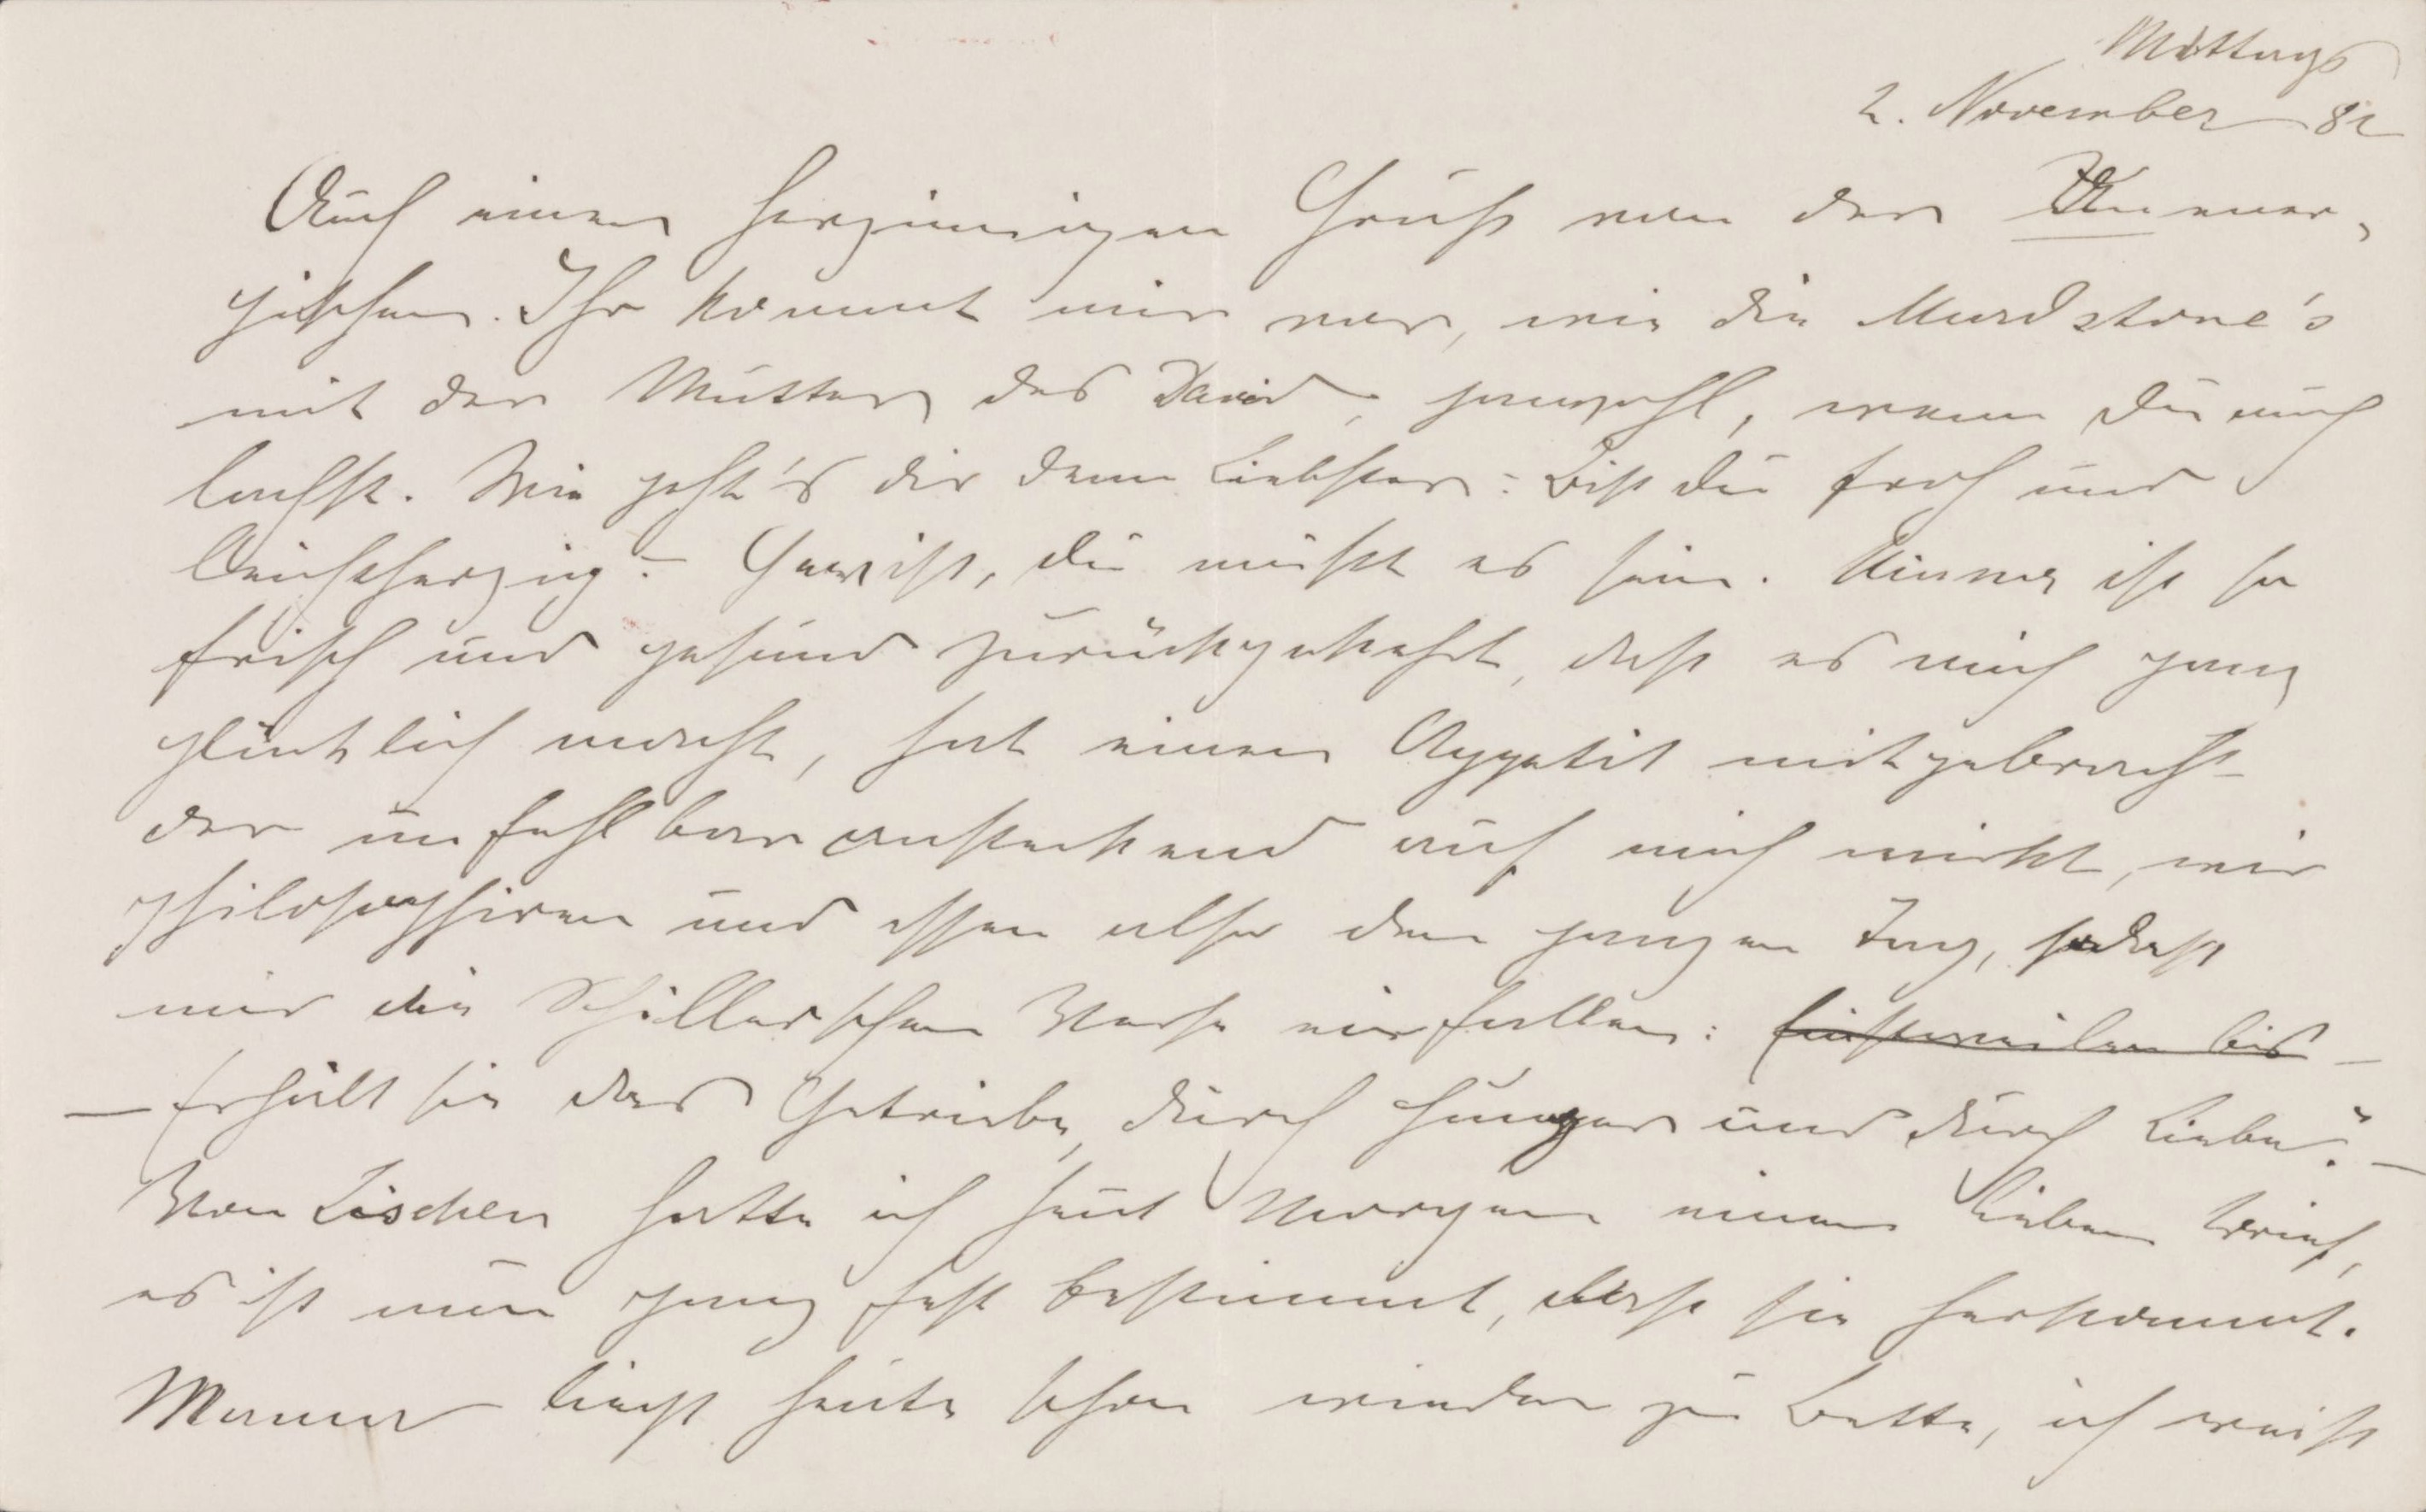 Mittags
2. November 82
Auch einen herzinnigen Gruß von der Unener-
gischen. Ihr kommt mir vor, wie die Murdstone's
mit der Mutter des David, jawohl, wenn du auch
lachst. Wie geht's dir denn Liebster? Bist du froh und
leichtherzig? Gewiß, du mußt es sein. Minna ist so
frisch und gesund zurückgekehrt, daß es mich ganz
glücklich macht, hat einen Appetit mitgebracht
der unfehlbar ansteckend auf mich wirkt, wir
philosophiren und essen also den ganzen Tag, sodaß
mir die Schillerschen Verse einfallen: Einstweilen bis –
– Erhält sie das Getriebe, durch Hunger und durch Liebe." –
Von Lischen hatte ich heut Morgen einen lieben Brief,
es ist nun ganz fest bestimmt, daß sie herkommt.
Mama liegt heute schon wieder zu Bette, ich weiß